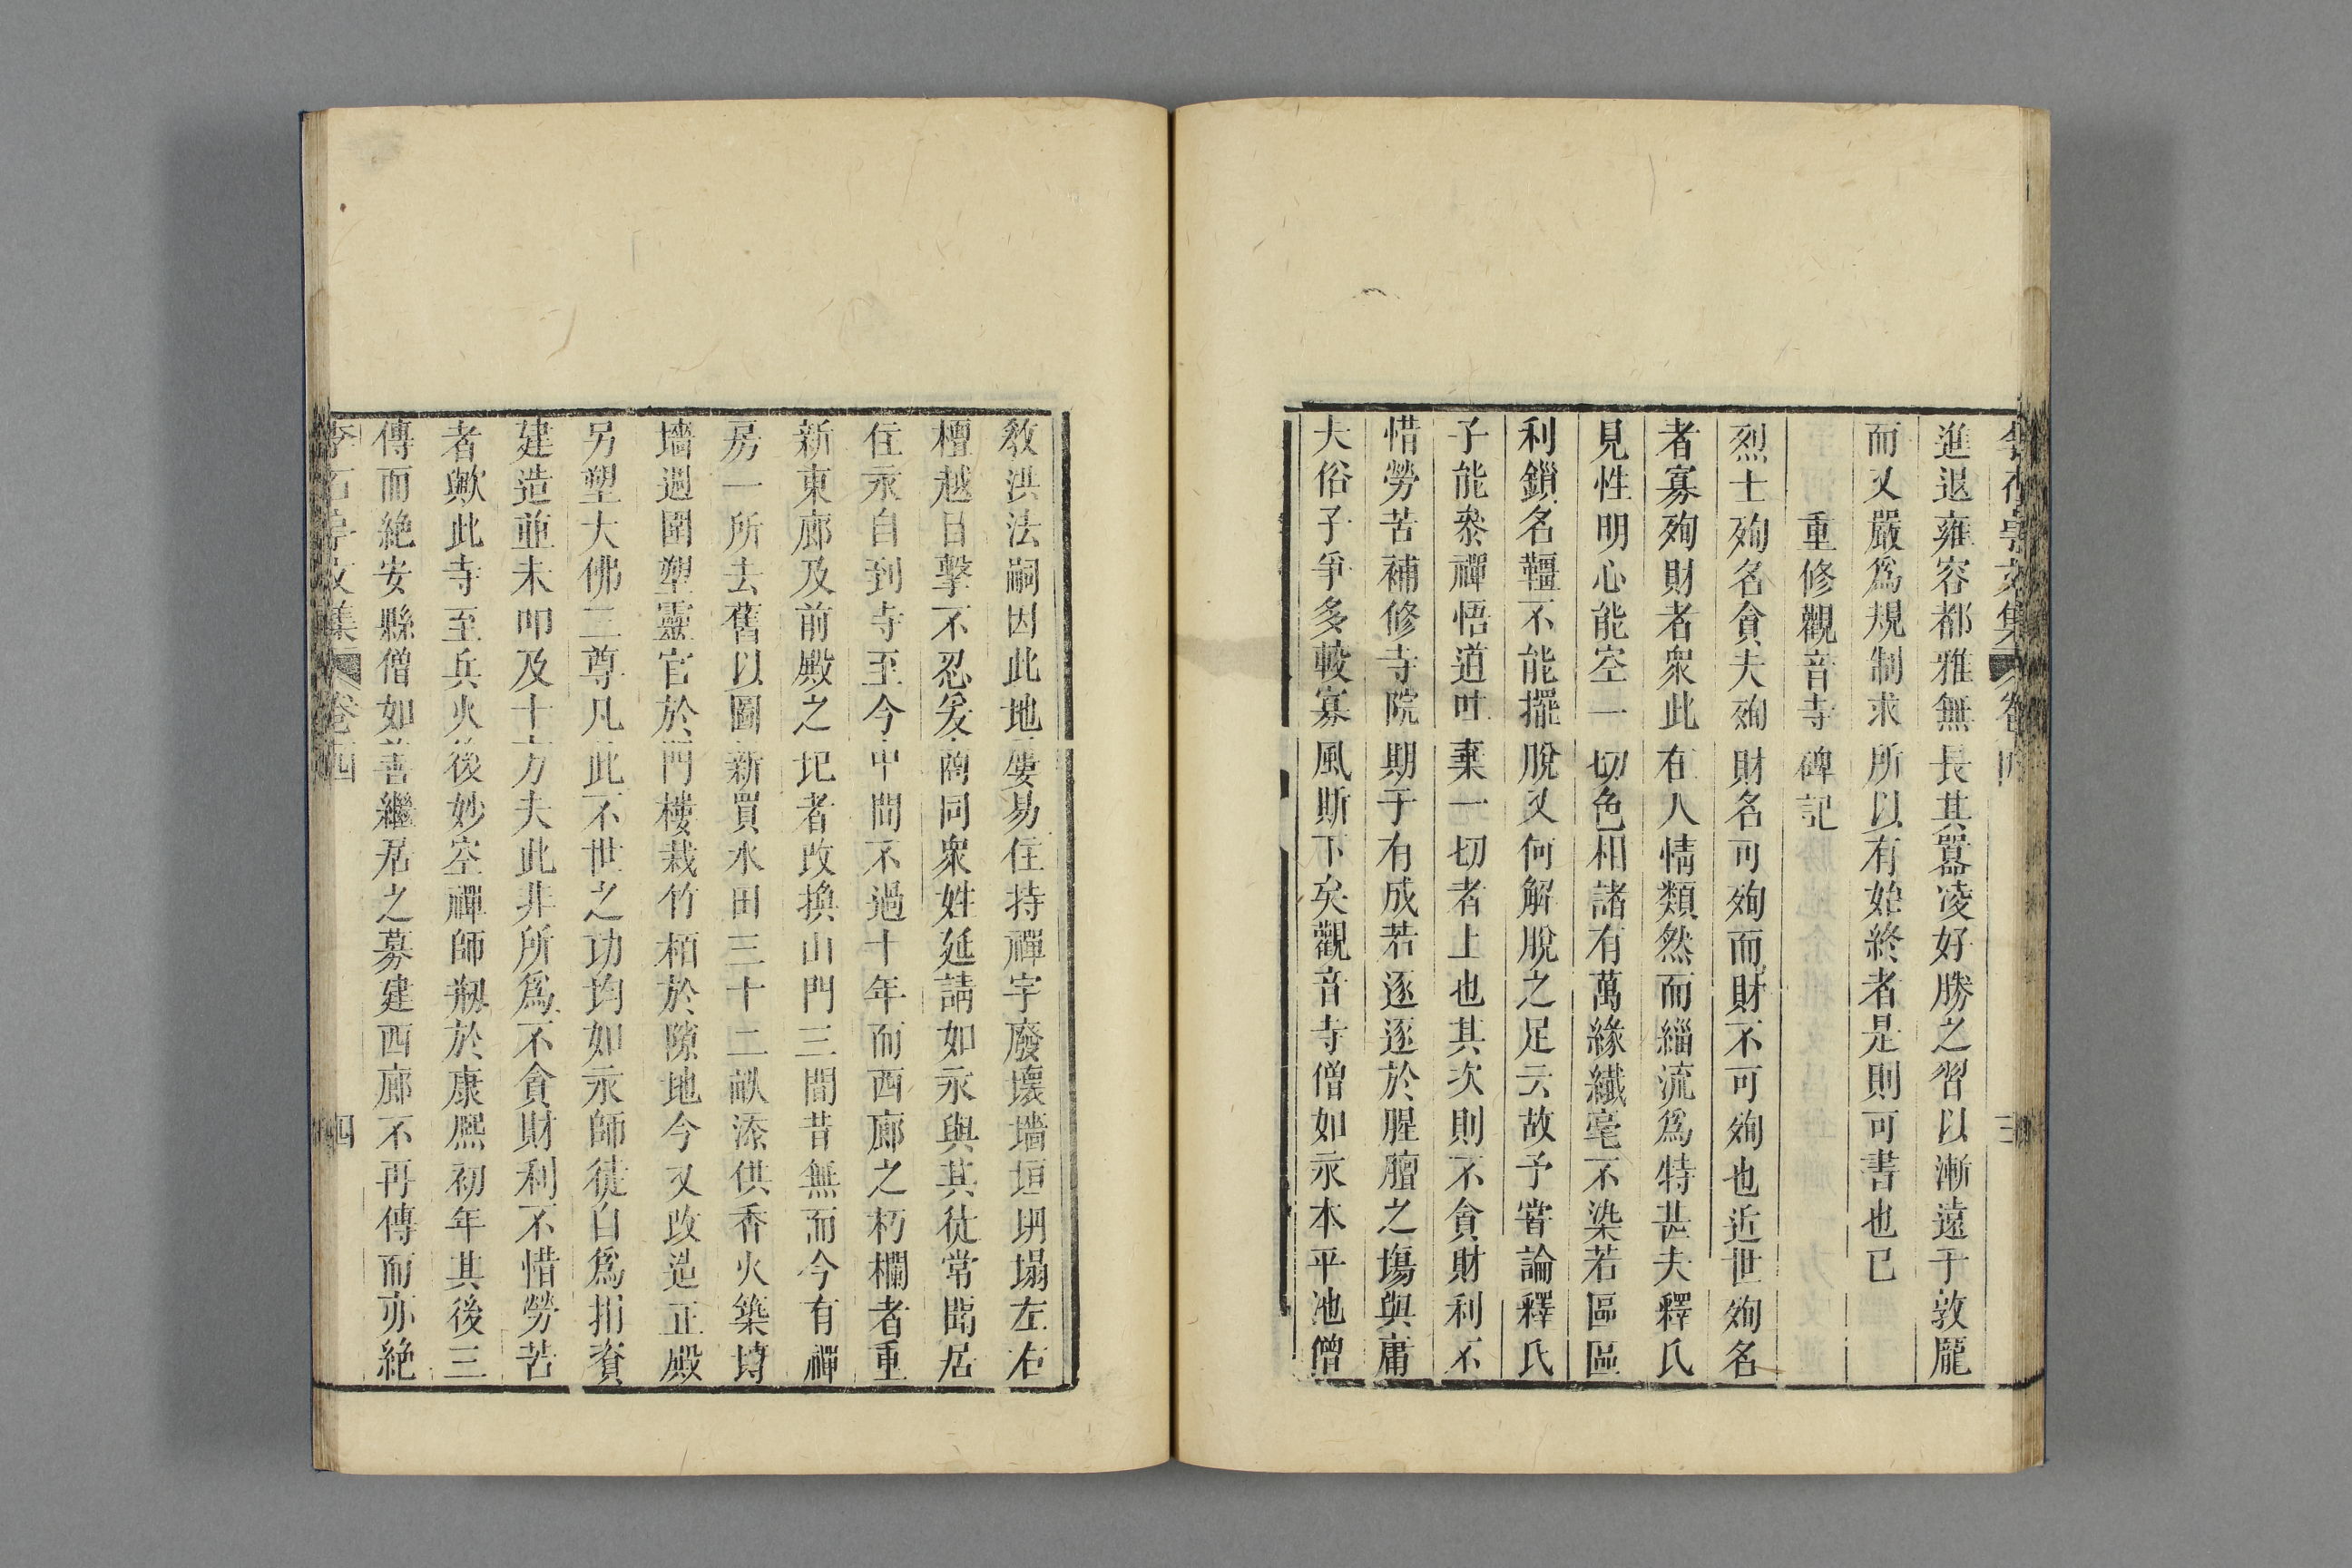 進退雍容都雅無長其囂凌好勝之習以漸遠于敦龎
而又嚴爲規制求所以有始終者是則可書也已
重修觀音寺碑記
烈士殉名貪夫殉財名可殉而財不可殉也近世殉名
者寡殉財者衆此在人情類然而緇流爲特甚夫釋氏
見性明心能空一切色相諸有萬緣纖毫不染若區區
利鎖名韁不能擺脫又何解脫之足云故予嘗論釋氏
子能叅禪悟道吐棄一切者上也其次則不貪財利不
惜勞苦補修寺院期于有成若逐逐於腥膻之塲與庸
夫俗子爭多較寡風斯下矣觀音寺僧如永本平池僧
敎洪法嗣因此地屢易住持禪宇廢壞墻垣坍塌左右
檀越目擊不忍爰商同衆姓延請如永與其徒常 居
住永自到寺至今中間不過十年而西廊之朽欄者重
新東廊及前殿之圯者改換山門三間昔無而今有禪
房一所去舊以圖新買水田三十二畝添供香火築塼
墻週圍塑靈官於門樓栽竹栢於隙地今又改造正殿
另塑大佛三尊凡此不世之功均如永師徒自爲捐資
建造並未叩及十方夫此非所爲不貪財利不惜勞苦
者歟此寺至兵火後妙空禪師剏於康熙初年其後三
傳而絶安縣僧如善繼居之募建西廊不再傳而亦絶
李石亭文集 卷四 四